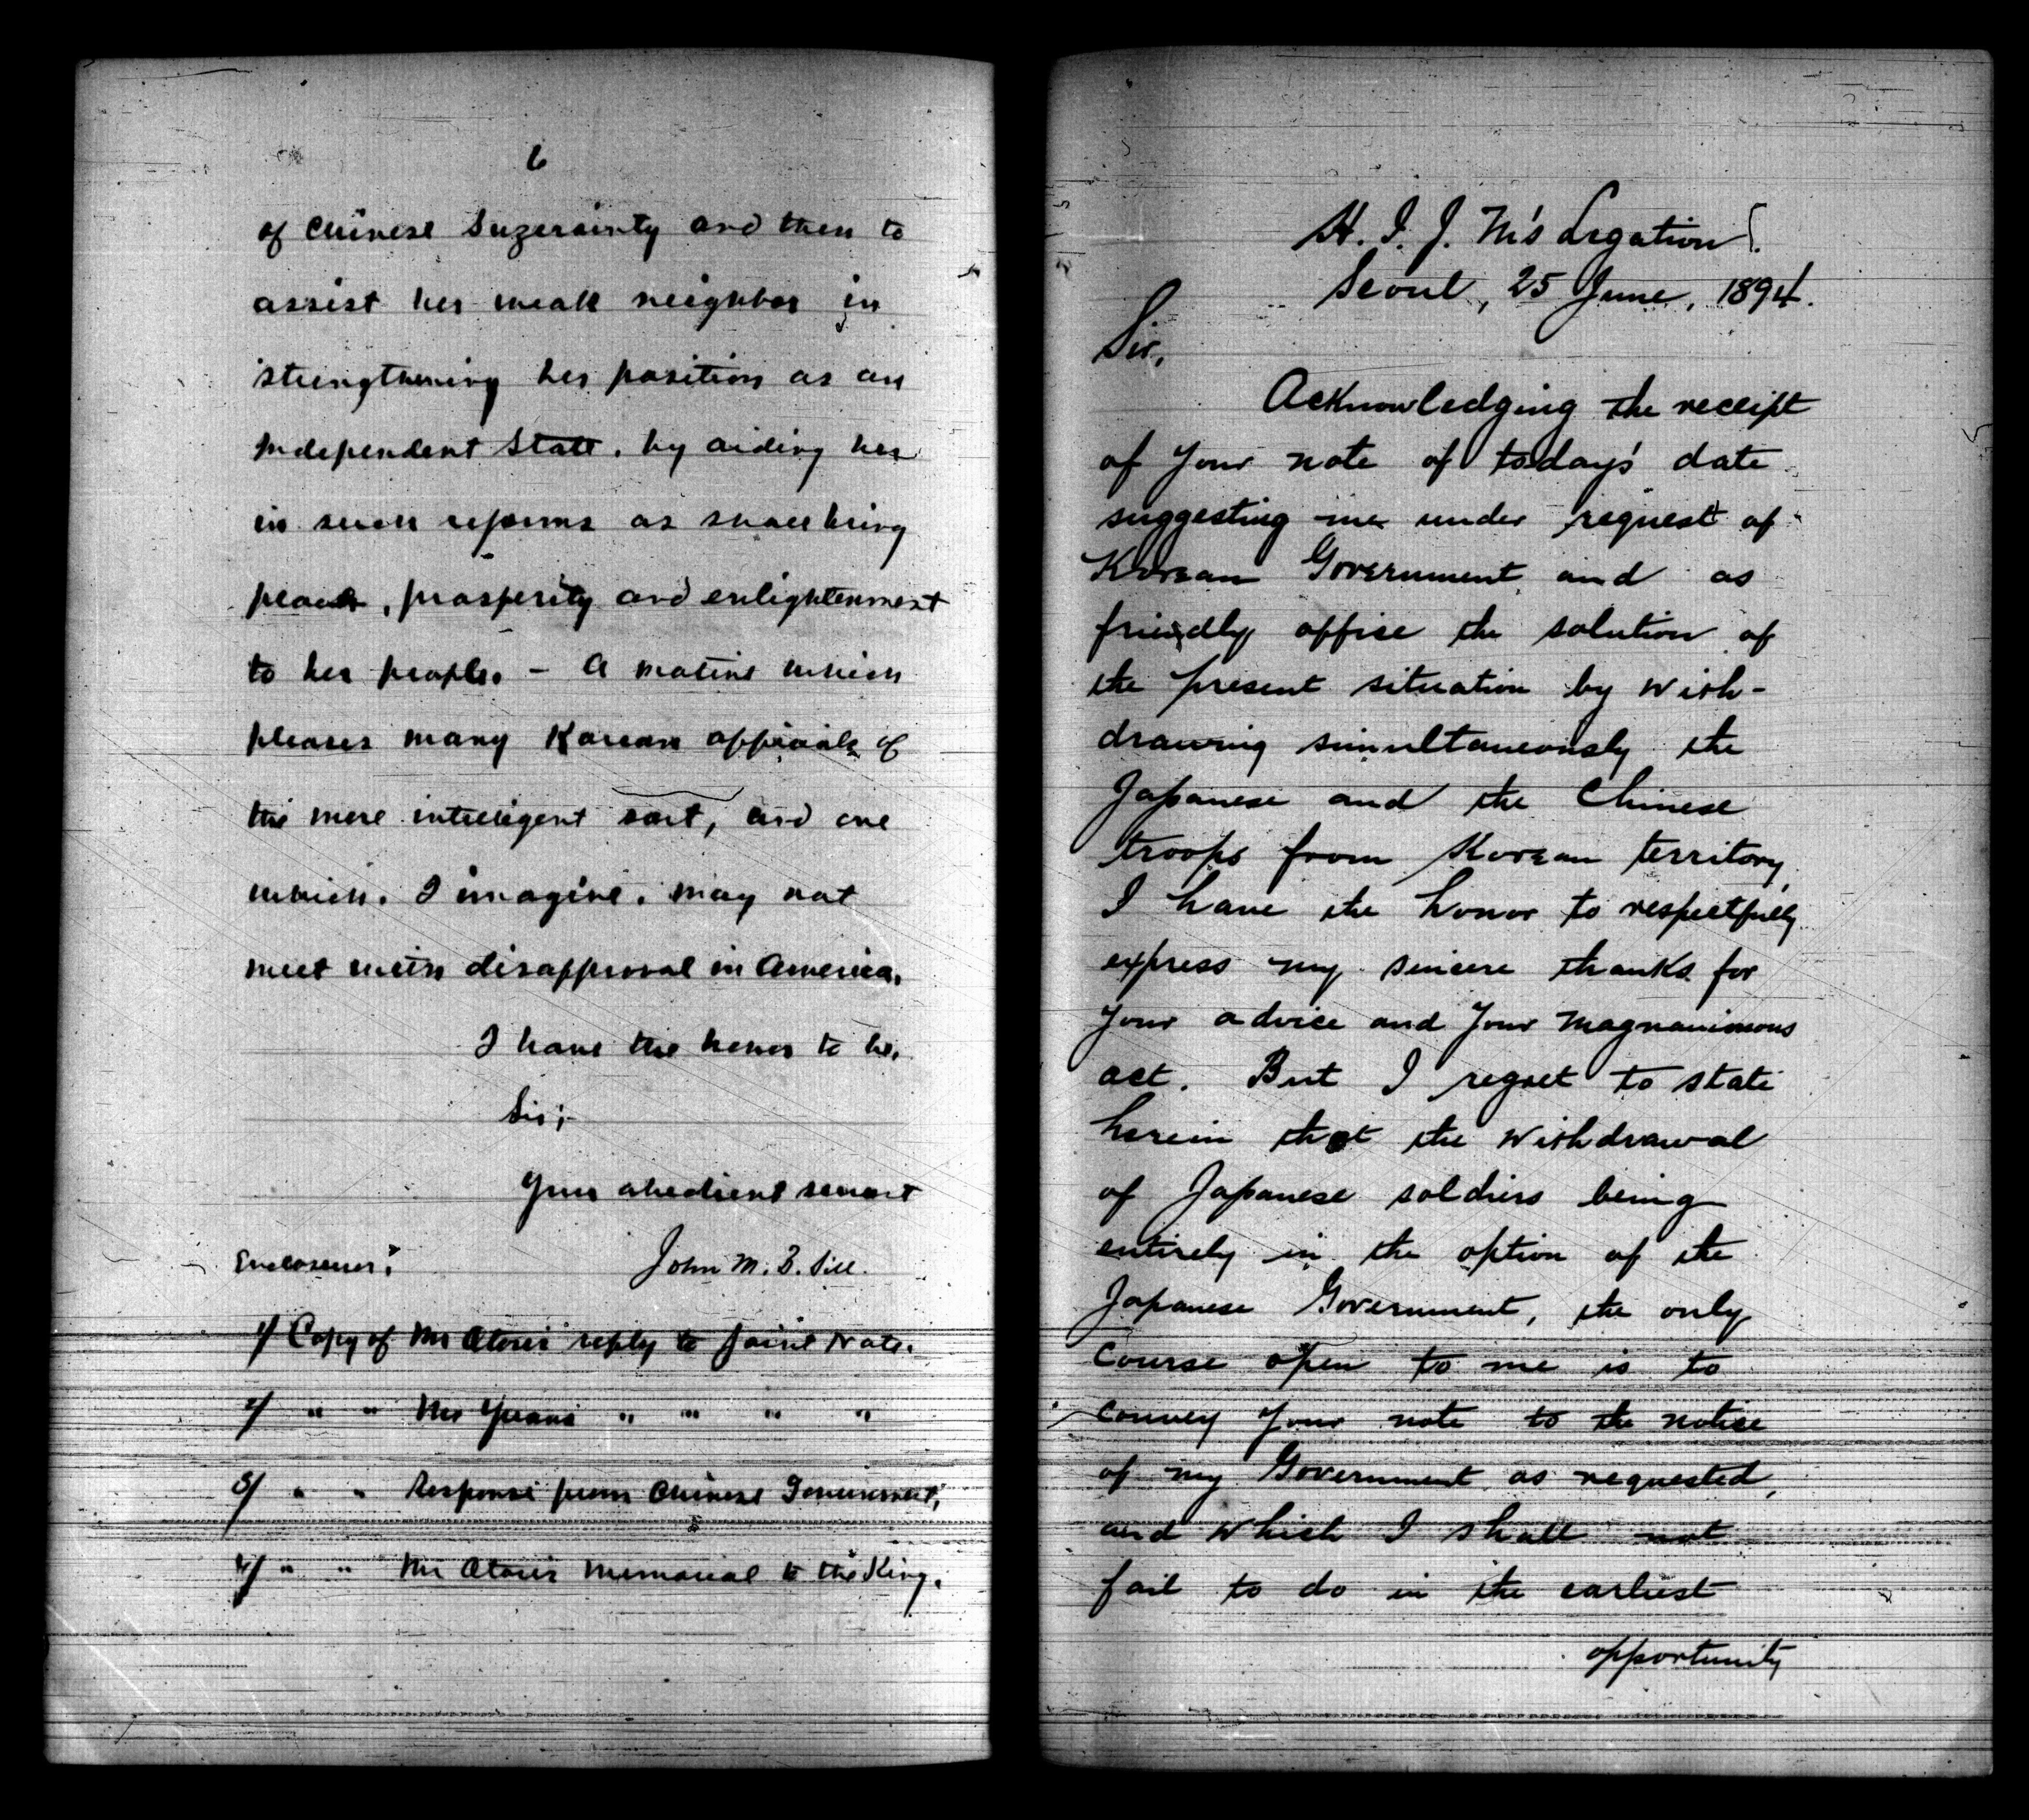 6
of Chinese Suzerainty and then to
assist her weak neighbor in
strengthening her position as an
independent State, by aiding her
in such reforms as shall bring
peace, prosperity and enlightenment
to her people. – A motive which
pleases many Korean officials of
the more intelligent sort, and one
which, I imagine, may not
meet with disapproval in America.
I have the honor to be,
Sir;
Your obedient servant
John M. B. Sill.
Enclosures:
1/ Copy of Mr Otori's reply to Joint Note.
2/ " " Mr Yuan's " " " "
3/ " " Response from Chinese Government;
4/ " " Mr Otori's Memorial to the King.
H. I. J. M's Legation.
Seoul, 25 June, 1894.
Sir,
Acknowledging the receipt
of your note of today's date
suggesting me under request of
Korean Government and as
friendly office the solution of
the present situation by with-
drawing simultaneously the
Japanese and the Chinese
troops from Korean territory,
I have the honor to respectfully
express my sincere thanks for
your advice and your magnanimous
act. But I regret to state
herein that the withdrawal
of Japanese soldiers being
entirely in the option of the
Japanese Government, the only
course open to me is to
convey your note to the notice
of my Government as requested,
and which I shall not
fail to do in the earliest
opportunity